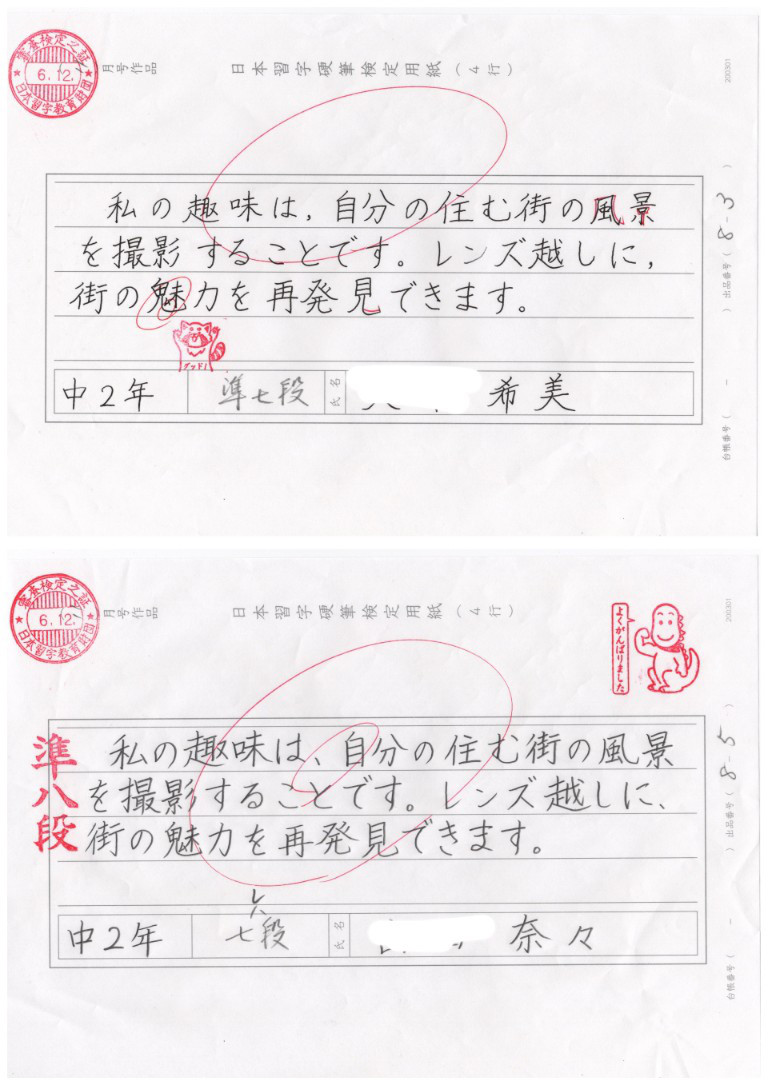 書筆検定之証
6.12.
日本習字教育財団
月号作品
日本習字硬筆検定用紙(4行)
200301
私の趣味は，自分の住む街の風景
を撮影することです。レンズ越しに，
街の魅力を再発見できます。
グッド！
中2年
準七段
氏名
希美
出品番号( 8-3 )
台帳番号( - )
書筆検定之証
6.12.
日本習字教育財団
月号作品
日本習字硬筆検定用紙(4行)
よくがんばりました
200301
準八段
私の趣味は、自分の住む街の風景
を撮影することです。レンズ越しに、
街の魅力を再発見できます。
中2年
七段
氏名
奈々
出品番号( 8-5 )
台帳番号( - )